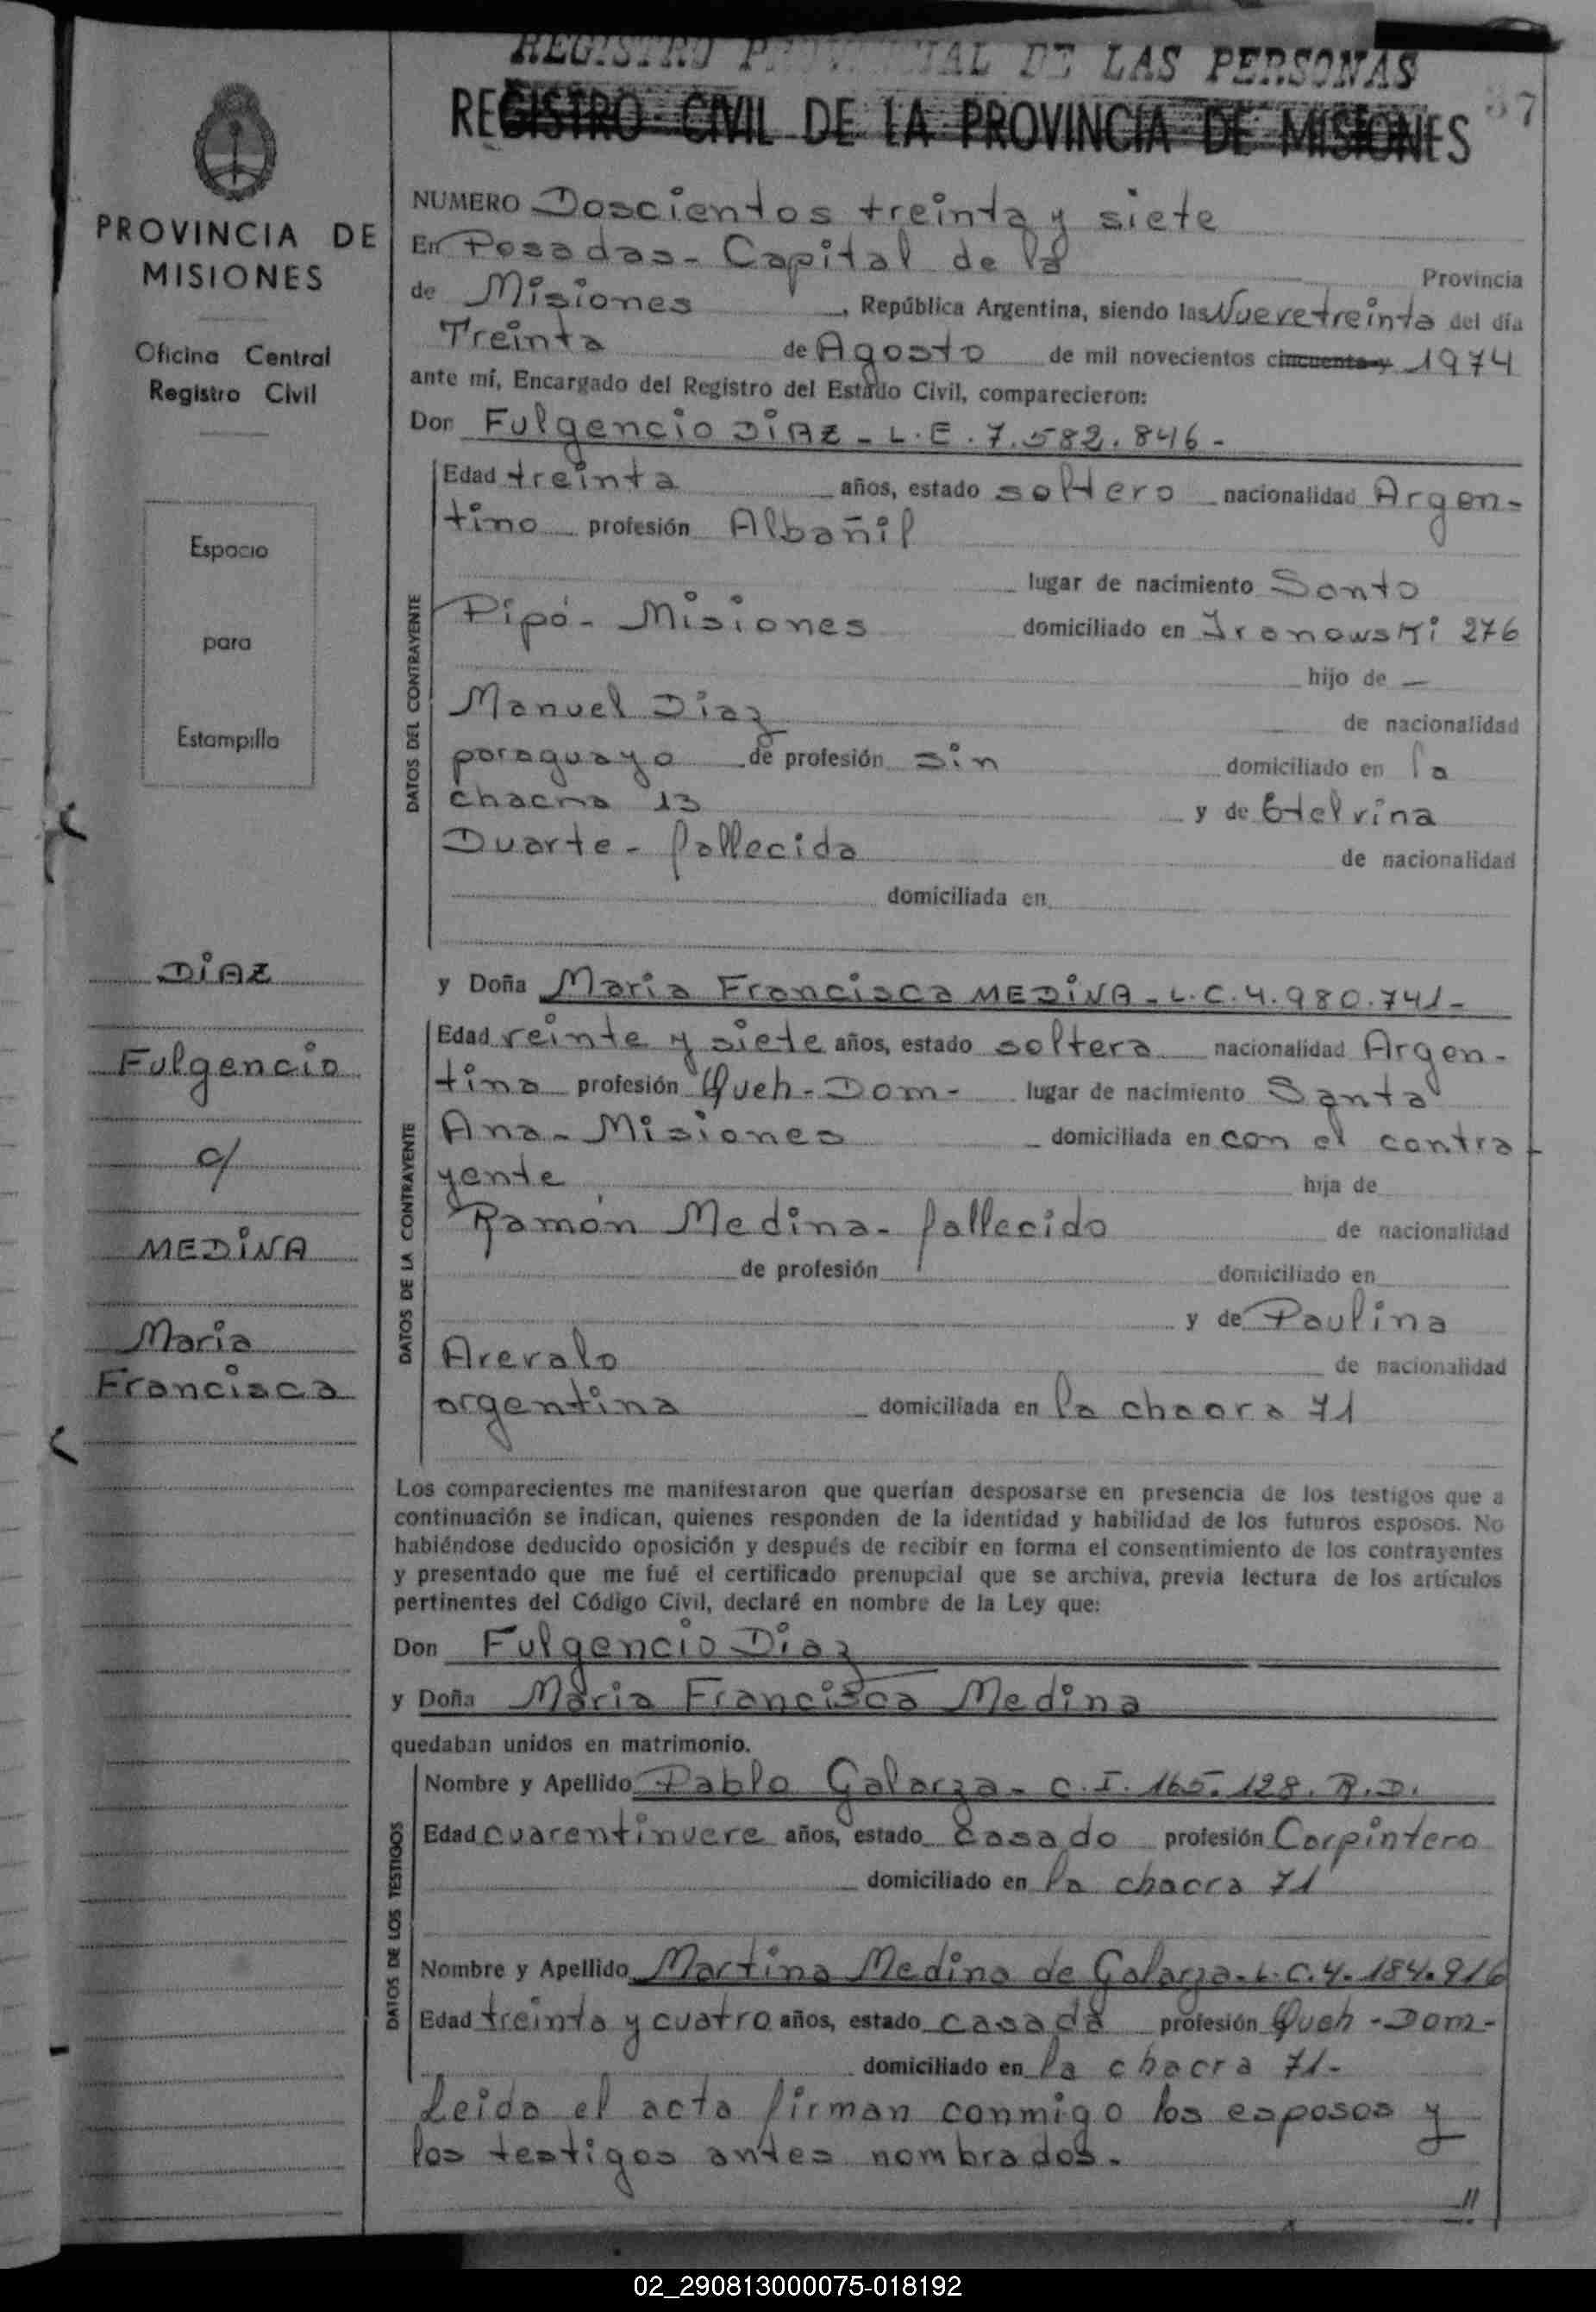 REGISTRO PROVINCIAL DE LAS PERSONAS
REGISTRO CIVIL DE LA PROVINCIA DE MISIONES
37
PROVINCIA DE
MISIONES
Oficina Central
Registro Civil
Espacio
para
Estampilla
DiAZ
Fulgencio
c/
MEDiNA
Maria
Francisca
NUMERO Doscientos treinta y siete
En Posadas - Capital de la Provincia
de Misiones, República Argentina, siendo las Nueve treinta del día
Treinta de Agosto de mil novecientos cincuenta y 1974
ante mí, Encargado del Registro del Estado Civil, comparecieron:
Don Fulgencio DiAZ - L.E. 7.582.846 -
DATOS DEL CONTRAYENTE
Edad treinta años, estado soltero nacionalidad Argen-
tino profesión Albañil
lugar de nacimiento Santo
Pipó - Misiones domiciliado en 276
hijo de —
Manuel Diaz de nacionalidad
paraguayo de profesión sin domiciliado en la
chacra 13 y de Etelvina
Duarte - fallecida de nacionalidad
domiciliada en
y Doña Maria Francisca MEDiNA - L.C. 4.980.741 -
DATOS DE LA CONTRAYENTE
Edad veinte y siete años, estado soltera nacionalidad Argen-
tina profesión Queh - Dom - lugar de nacimiento Santa
Ana - Misiones domiciliada en con el contra
yente hija de
Ramón Medina - fallecido de nacionalidad
de profesión domiciliado en
y de Paulina
Arevalo de nacionalidad
argentina domiciliada en la chacra 71
Los comparecientes me manifestaron que querían desposarse en presencia de los testigos que a
continuación se indican, quienes responden de la identidad y habilidad de los futuros esposos. No
habiéndose deducido oposición y después de recibir en forma el consentimiento de los contrayentes
y presentado que me fué el certificado prenupcial que se archiva, previa lectura de los artículos
pertinentes del Código Civil, declaré en nombre de la Ley que:
Don Fulgencio Diaz
y Doña Maria Francisca Medina
quedaban unidos en matrimonio.
DATOS DE LOS TESTIGOS
Nombre y Apellido Pablo Galarza - C.I. 165.128. R.D.
Edad cuarentinueve años, estado casado profesión Carpintero
domiciliado en la chacra 71
Nombre y Apellido Martina Medina de Galarza - L.C. 4.184.916
Edad treinta y cuatro años, estado casada profesión Queh - Dom -
domiciliado en la chacra 71 -
Leida el acta firman conmigo los esposos y
los testigos antes nombrados.
//
02_290813000075-018192